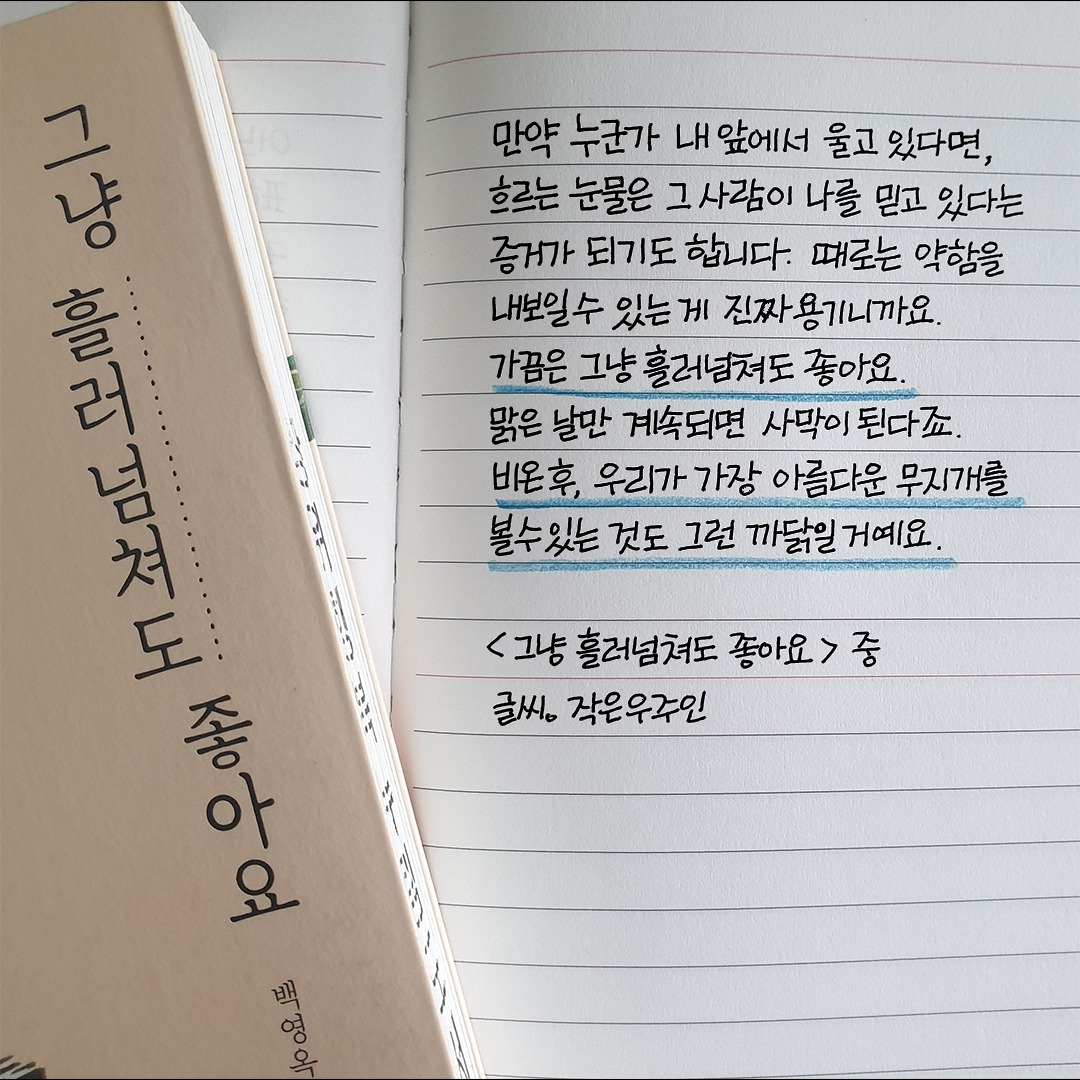 그냥 흘러넘쳐도 좋아요
백영옥
만약 누군가 내 앞에서 울고 있다면,
흐르는 눈물은 그 사람이 나를 믿고 있다는
증거가 되기도 합니다. 때로는 약함을
내보일수 있는 게 진짜 용기니까요.
가끔은 그냥 흘러넘쳐도 좋아요.
맑은 날만 계속되면 사막이 된다죠.
비온 후, 우리가 가장 아름다운 무지개를
볼수있는 것도 그런 까닭일거예요.
<그냥 흘러넘쳐도 좋아요> 중
글씨。 작은우주인